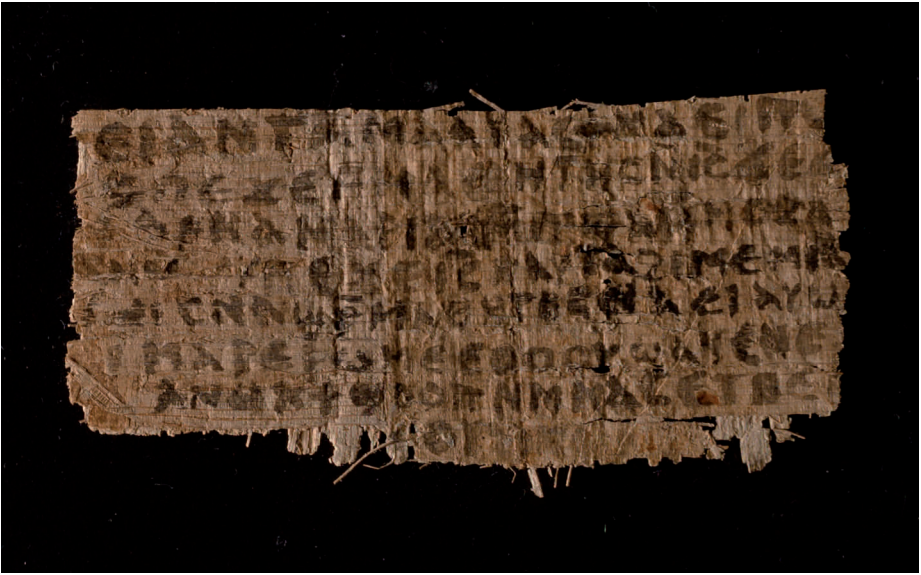 ⲉⲓ ⲁⲛ ⲧⲁⲙⲁⲁⲩ ⲁⲥϯ ⲛⲁⲉⲓ ⲡⲱ
ⲡⲉϫⲉ ⲙⲙⲁⲑⲏⲧⲏⲥ ⲛⲓ̅ⲥ̅ ϫⲉ
ⲁⲣⲛⲁ ⲙⲁⲣⲓⲁⲙ ⲙⲡϣⲁ ⲙⲙⲟⲥ ⲁ
ⲡⲉϫⲉ ⲓ̅ⲥ̅ ⲛⲁⲩ ⲧⲁϩⲓⲙⲉ ⲙⲛ
ⲥⲛⲁϣⲣⲙⲁⲑⲏⲧⲏⲥ ⲛⲁⲉⲓ ⲁⲩⲱ
ⲓ ⲙⲁⲣⲉⲣⲱⲙⲉ ⲉⲑⲟⲟⲩ ϣⲁϥⲉ ⲛⲉ
ⲁⲛⲟⲕ ϯϣⲟⲟⲡ ⲛⲙⲙⲁⲥ ⲉⲧⲃⲉ